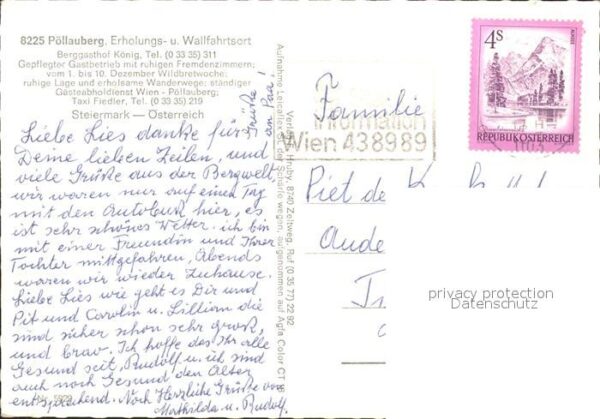 8225 Pöllauberg, Erholungs- u. Wallfahrtsort
Berggasthof König, Tel. (0 33 35) 311
Gepflegter Gastbetrieb mit ruhigen Fremdenzimmern;
vom 1. bis 10. Dezember Wildbretwoche;
ruhige Lage und erholsame Wanderwege; ständiger
Gästeabholdienst Wien - Pöllauberg;
Taxi Fiedler, Tel. (0 33 35) 219
Steiermark — Österreich
Liebe Lies danke für
Deine lieben Zeilen, und
viele Grüße aus der Bergwelt
wir waren nur auf einen Tag
mit den Autobus hier, es
ist sehr schönes Wetter. ich bin
mit einer Freundin und Ihrer
Tochter mitgefahren, Abends
waren wir wieder Zuhause.
Liebe Lies wie geht es Dir und
Pit und Carolin u. Lillian die
sind sicher schon sehr Groß,
und brav. Ich hoffe das Ihr alle
Gesund seit, Rudolf u. ich sind
auch noch Gesund den Alter
entsprechend. Noch Herzliche Grüße von
Mathilda u. Rudolf.
Grüße
an Paa!
Nr. 5929
Verlag A. Hruby, 8740 Zeltweg, Ruf (0 35 77) 22 92
4S
REPUBLIK ÖSTERREICH
Information
Wien 438989
1103
Familie
Piet de K
Aude
privacy protection
Datenschutz